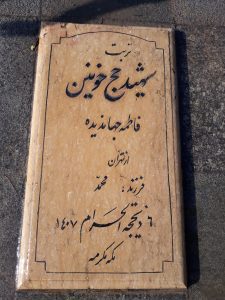 تربت
شهید حج خونین
فاطمه جهاندیده
از تهران
فرزند : محمد
۶ ذیحجة الحرام ۱۴۰۷
مکه مکرمه